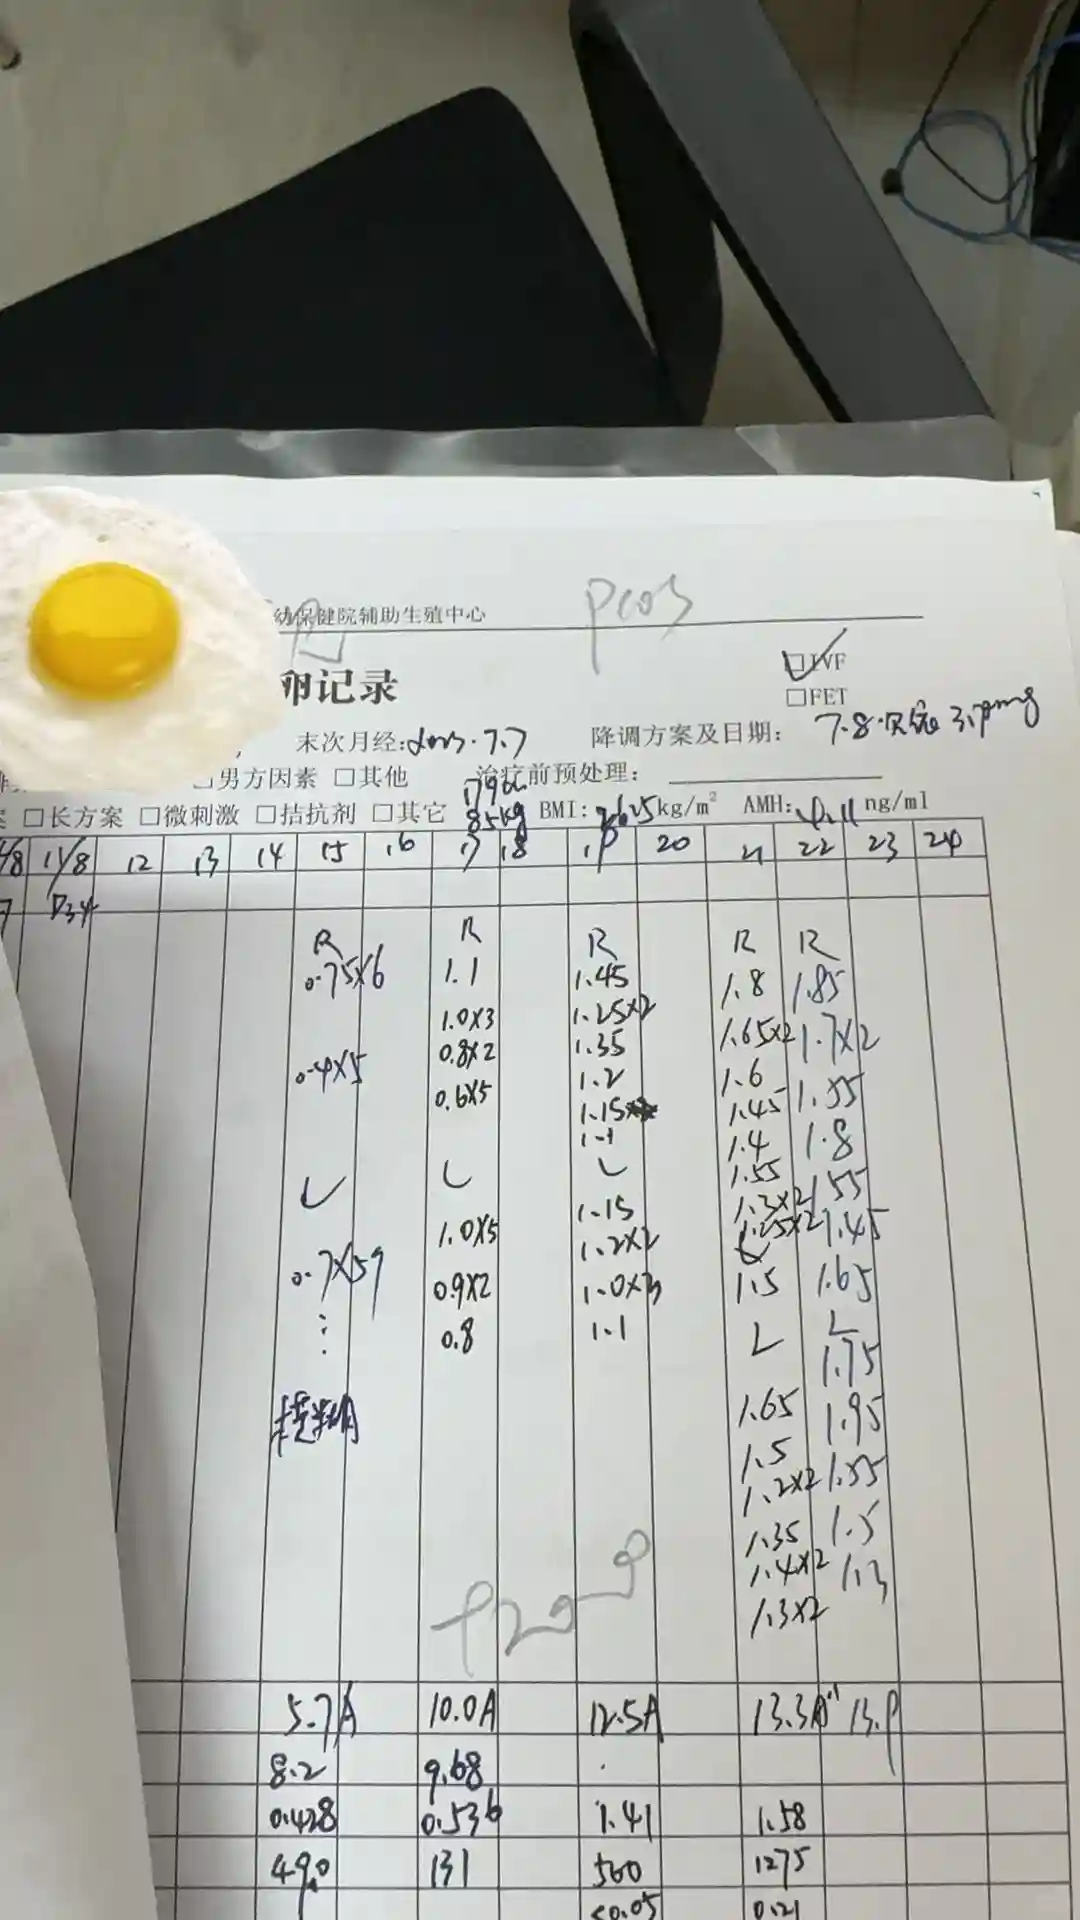 幼保健院辅助生殖中心
PCOS
卵记录
□IVF
□FET
末次月经:2023.7.7
降调方案及日期:
7.8
3.75mg
□男方因素 □其他
治疗前预处理:
□长方案 □微刺激 □拮抗剂 □其它
85kg
BMI: 26.25kg/m²
AMH: ng/ml
11/8 12 13 14 15 16 17 18 19 20 21 22 23 24
D34
R R R R R
0.75×6 1.1 1.45 1.8 1.85
1.0×3 1.25×2 1.65×2 1.7×2
0.8×2 1.35
0.4×5 0.6×5 1.2 1.6 1.55
1.15 1.45
1.1 1.4 1.8
L L L 1.55 1.55
1.15 1.3×2
1.0×5 1.2×2 1.25×2 1.45
0.7×5 0.9×2 1.0×3 1.5 1.65
⋮ 0.8 1.1 L L
1.75
1.65 1.95
1.5
1.2×2 1.55
1.35 1.5
1.4×2 1.3
1.3×2
5.7A 10.0A 12.5A 13.3A
8.2 9.68
0.428 0.536 1.41 1.58
49.0 131 560 1275
<0.05 0.21